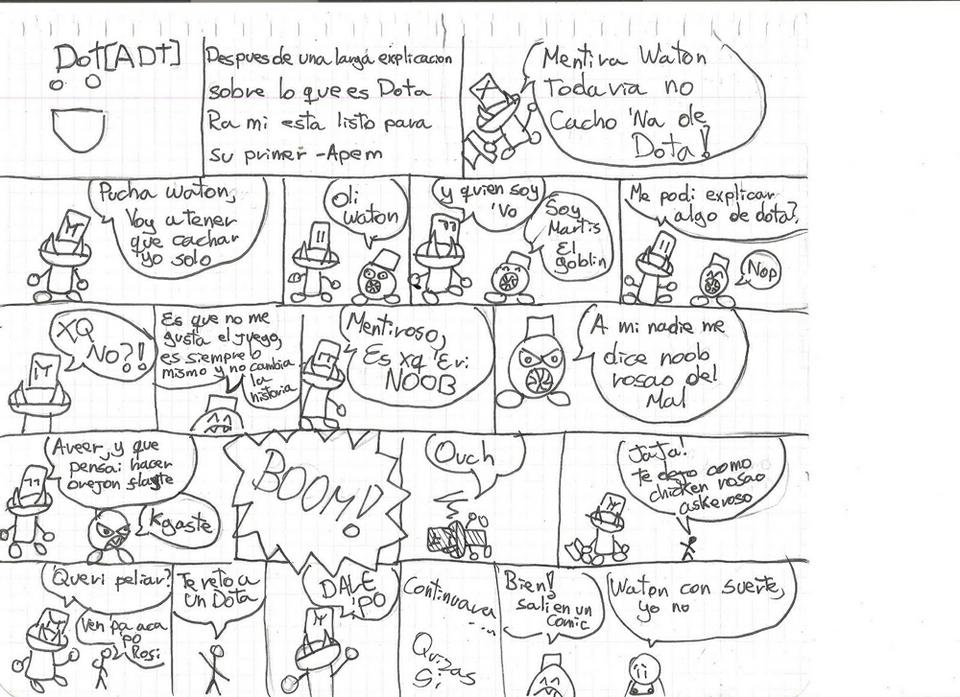 Dot[ADT]
Despues de una larga explicacion
sobre lo que es Dota
Rami esta listo para
su primer -Apem
Mentira Waton
Todavia no
Cacho 'Na de
Dota!
Pucha waton,
Voy a tener
que cachar
yo solo
Oli
waton
y quien soy
'Vo
Soy
Martis
El
goblin
Me podi explicar
algo de dota?
Nop
XQ
No?!
Es que no me
gusta el juego,
es siempre lo
mismo y no cambia
la
historia
Mentiroso,
Es xq 'Eri
NOOB
A mi nadie me
dice noob
rosao del
Mal
Aveer, y que
pensai hacer
orejon flayte
Kgaste
BOOM!
Ouch
JaJa!
te dejo como
chicken rosao
askeroso
Queri peliar?
Ven pa aca
'po
Rosi
Te reto a
un Dota
DALE
'PO
Continuara
....
Quizas
Si
Bien!
sali en un
comic
Waton con suerte,
yo no